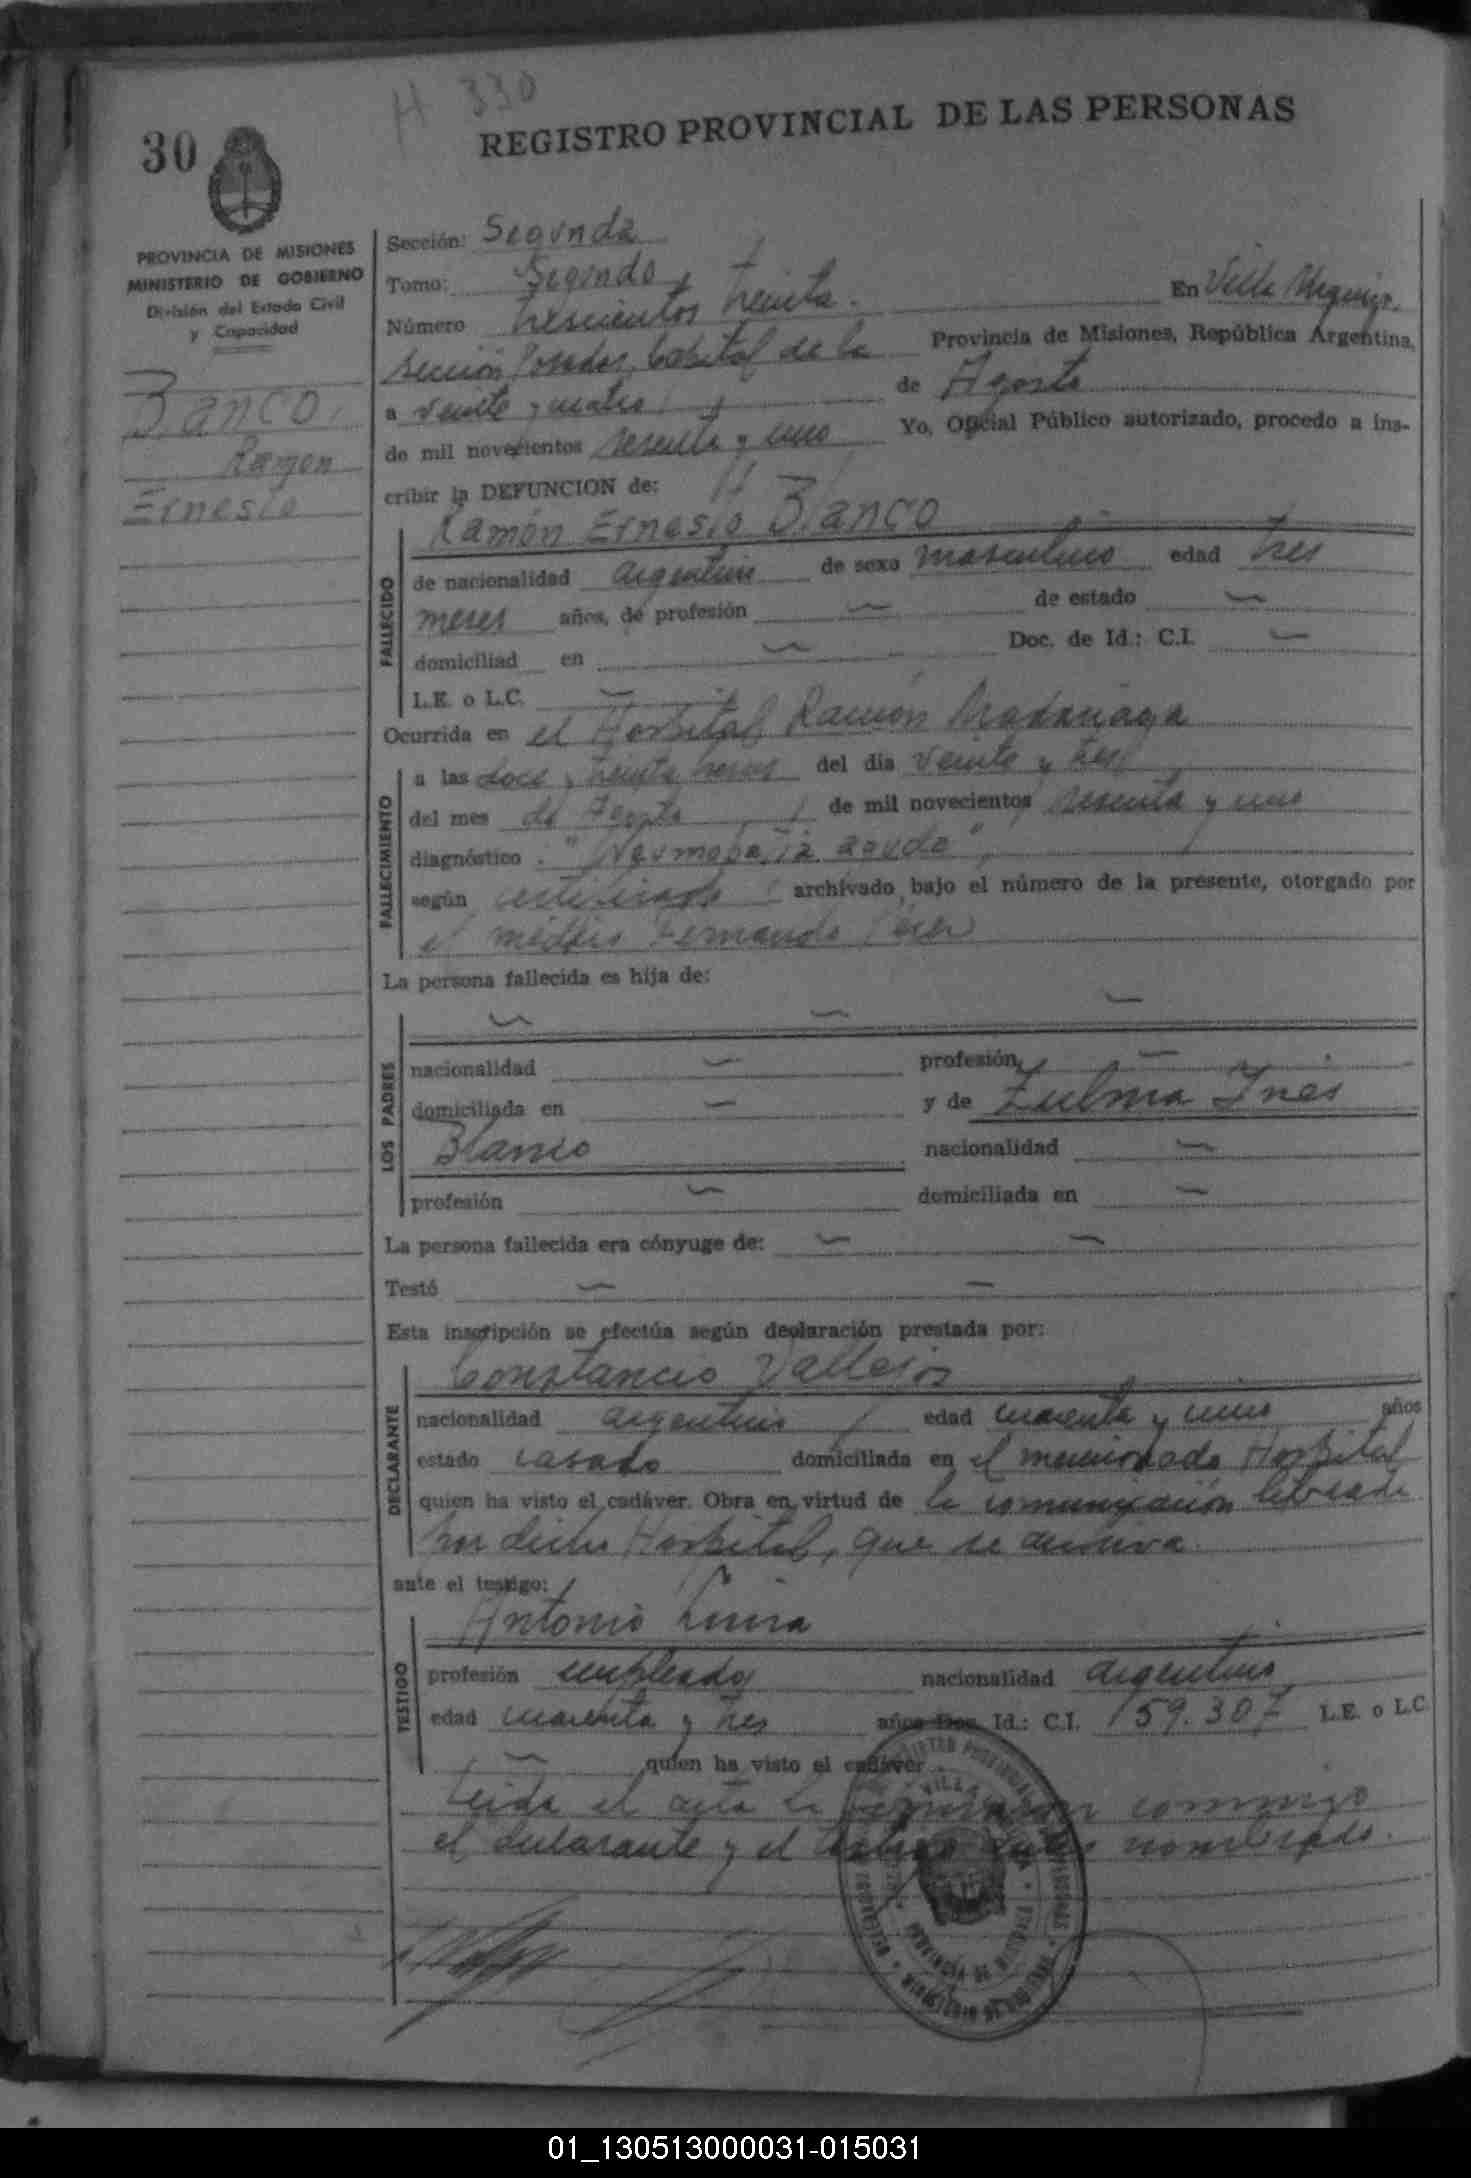 H 330
30
REGISTRO PROVINCIAL DE LAS PERSONAS
PROVINCIA DE MISIONES
MINISTERIO DE GOBIERNO
División del Estado Civil
y Capacidad
Blanco,
Ramon
Ernesto
Sección: Segunda
Tomo: Segundo
Número trescientos treinta. En Villa Urquiza.
sección Posadas, Capital de la Provincia de Misiones, República Argentina,
a veinte y cuatro de Agosto
de mil novecientos sesenta y uno Yo, Oficial Público autorizado, procedo a ins-
cribir la DEFUNCION de:
FALLECIDO
Ramón Ernesto Blanco
de nacionalidad argentino de sexo masculino edad tres
meses años, de profesión — de estado —
domiciliad en — Doc. de Id.: C.I. —
L.E. o L.C. —
Ocurrida en el Hospital Ramón Madariaga
FALLECIMIENTO
a las doce y treinta horas del día veinte y tres
del mes de Agosto de mil novecientos sesenta y uno
diagnóstico: "Neumopatía aguda",
según certificado archivado bajo el número de la presente, otorgado por
el médico Fernando
La persona fallecida es hija de:
LOS PADRES
— — —
nacionalidad — profesión —
domiciliada en — y de Zulma Ines
Blanco nacionalidad —
profesión — domiciliada en —
La persona fallecida era cónyuge de: — —
Testó — —
Esta inscripción se efectúa según declaración prestada por:
DECLARANTE
Constancio Vallejos
nacionalidad argentino edad cuarenta y uno años
estado casado domiciliada en el mencionado Hospital
quien ha visto el cadáver. Obra en virtud de la comunicación librada
por dicho Hospital, que se archiva.
ante el testigo:
TESTIGO
Antonio
profesión empleado nacionalidad argentino
edad cuarenta y tres años Doc. Id.: C.I. 159.307 L.E. o L.C.
— quien ha visto el cadáver.
Leida el acta la firmaron conmigo
el declarante y el testigo antes nombrado.
VILLA
PROVINCIA DE MISIONES
01_130513000031-015031